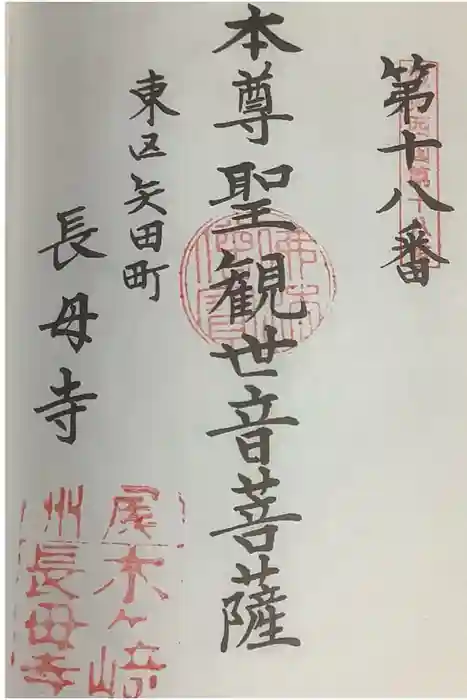 第十八番
本尊聖観世音菩薩
東区矢田町
長母寺
尾州
木ヶ崎
長母寺